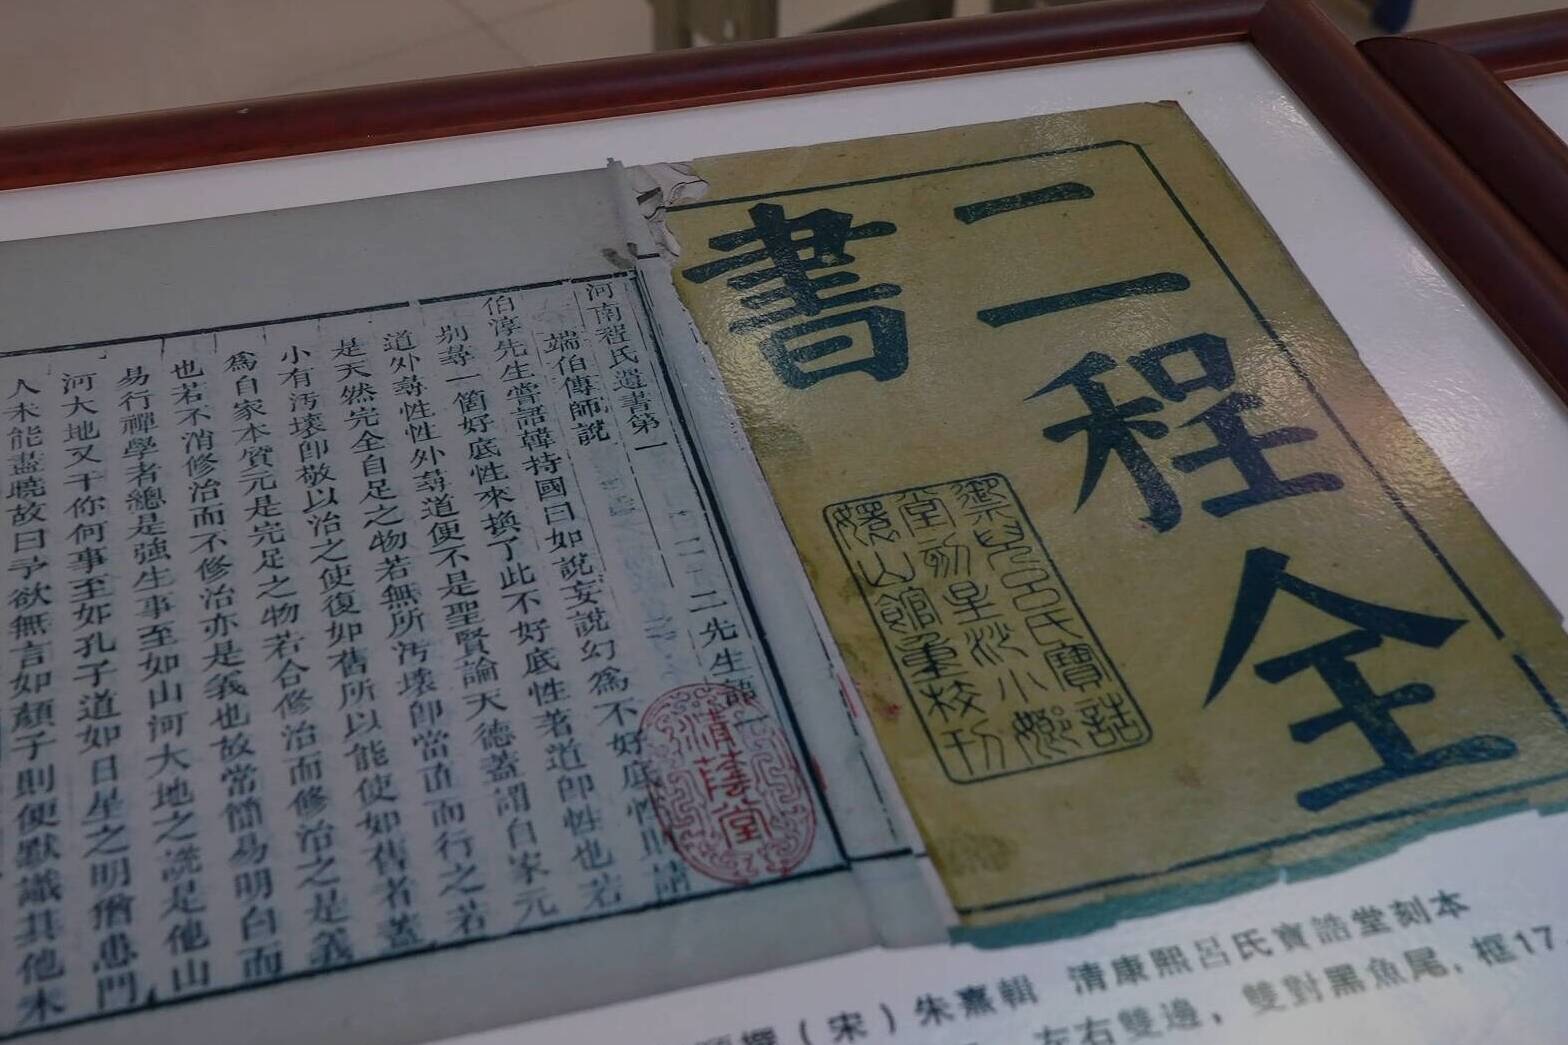 二程全
書
禦兒呂氏寶誥
堂初星沙小嫏
嬛山館重校刊
河南程氏遺書第一 二先生語一
端伯傳師說
伯淳先生嘗語韓持國曰如說妄說幻爲不好底性則請
別尋一箇好底性來換了此不好底性著道卽性也若
道外尋性性外尋道便不是聖賢論天德蓋謂自家元
是天然完全自足之物若無所汚壞卽當直而行之若
小有汚壞卽敬以治之使復如舊所以能使如舊者蓋
爲自家本質元是完足之物若合修治而修治之是義
也若不消修治而不修治亦是義也故常簡易明白而
易行禪學者總是強生事至如山河大地之說是他山
河大地又干你何事至如孔子道如日星之明猶患門
人未能盡曉故曰予欲無言如顏子則便默識其他未
清蔭堂
（宋）朱熹輯 清康熙呂氏寶誥堂刻本
左右雙邊，雙對黑魚尾，框17